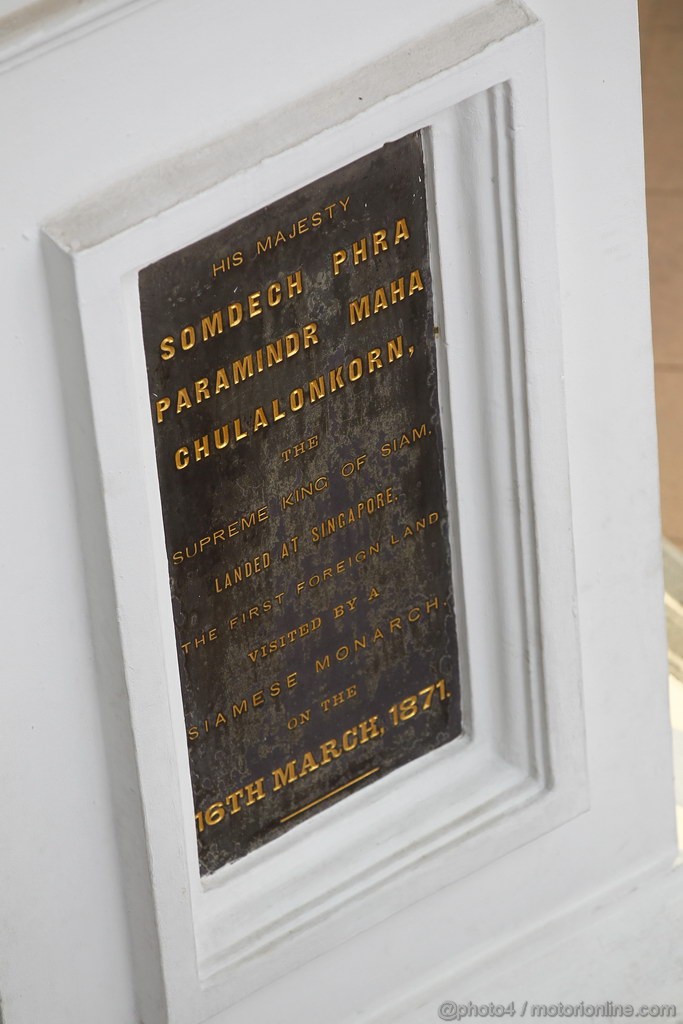 HIS MAJESTY
SOMDECH PHRA
PARAMINDR MAHA
CHULALONKORN,
THE
SUPREME KING OF SIAM.
LANDED AT SINGAPORE.
THE FIRST FOREIGN LAND
VISITED BY A
SIAMESE MONARCH.
ON THE
16TH MARCH, 1871.
@photo4 / motorionline.com